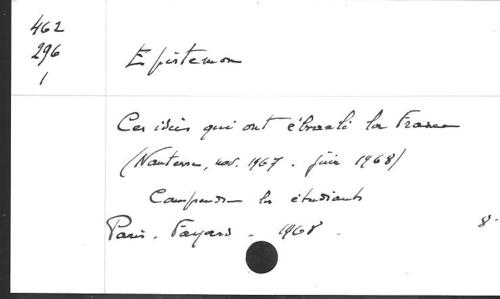 462
296
1
Epistemon
Ces idées qui ont ébranlé la France
(Nanterre, nov. 1967 - juin 1968)
Comprendre les étudiants
Paris. Fayard. 1968.
8°